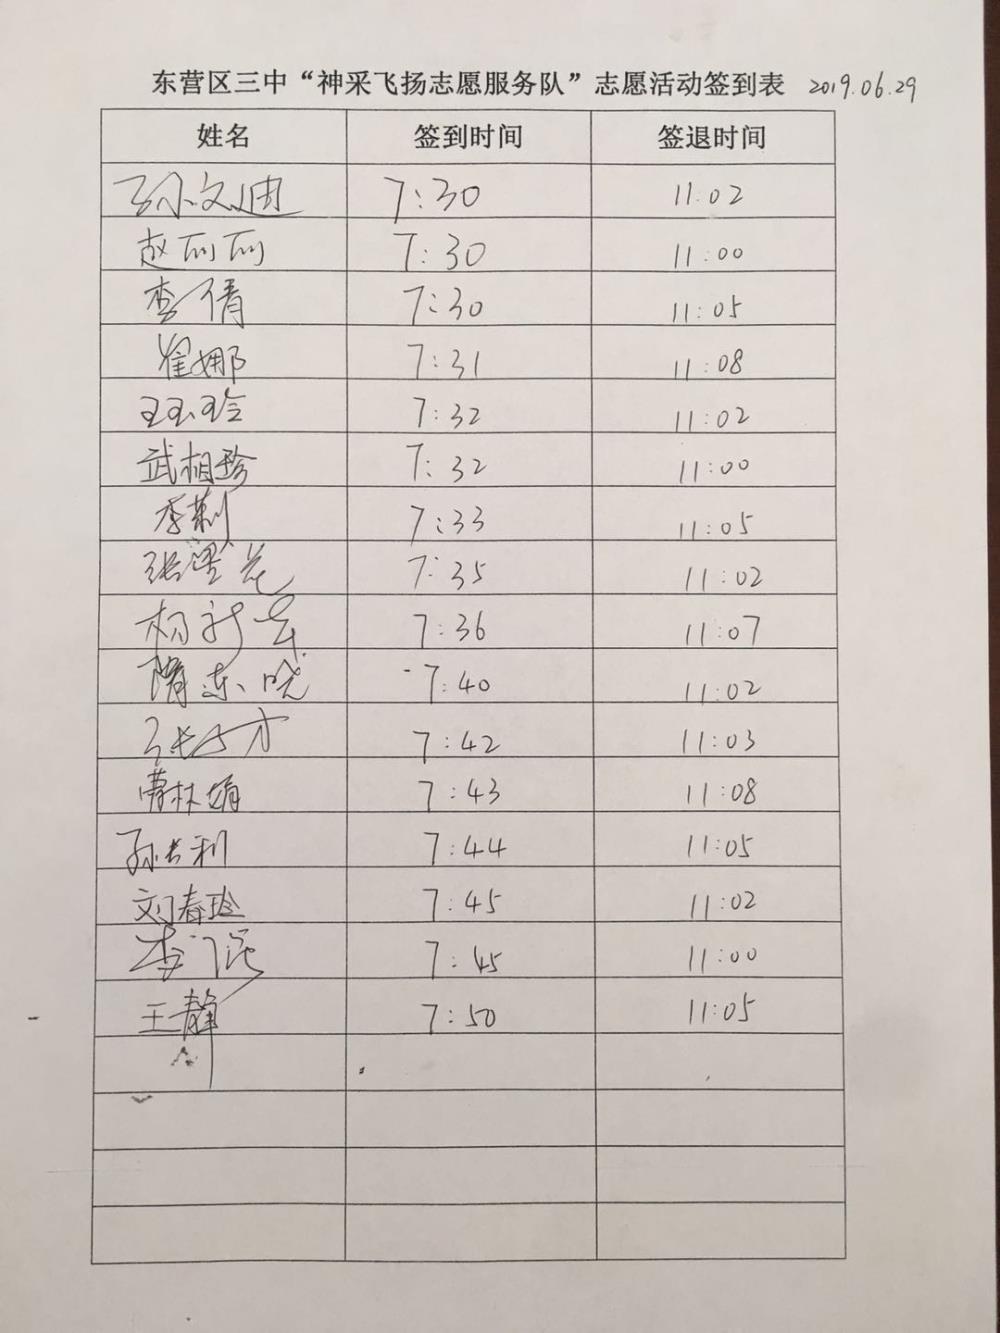 东营区三中“神采飞扬志愿服务队”志愿活动签到表 2019.06.29
姓名 签到时间 签退时间
孙文迪 7:30 11:02
赵丽丽 7:30 11:00
李倩 7:30 11:05
崔娜 7:31 11:08
王玉玲 7:32 11:02
武相珍 7:32 11:00
李荆 7:33 11:05
张墨芝 7:35 11:02
杨新 7:36 11:07
隋东晓 7:40 11:02
张 7:42 11:03
曹林娟 7:43 11:08
孙长利 7:44 11:05
刘春玲 7:45 11:02
李 7:45 11:00
王静 7:50 11:05